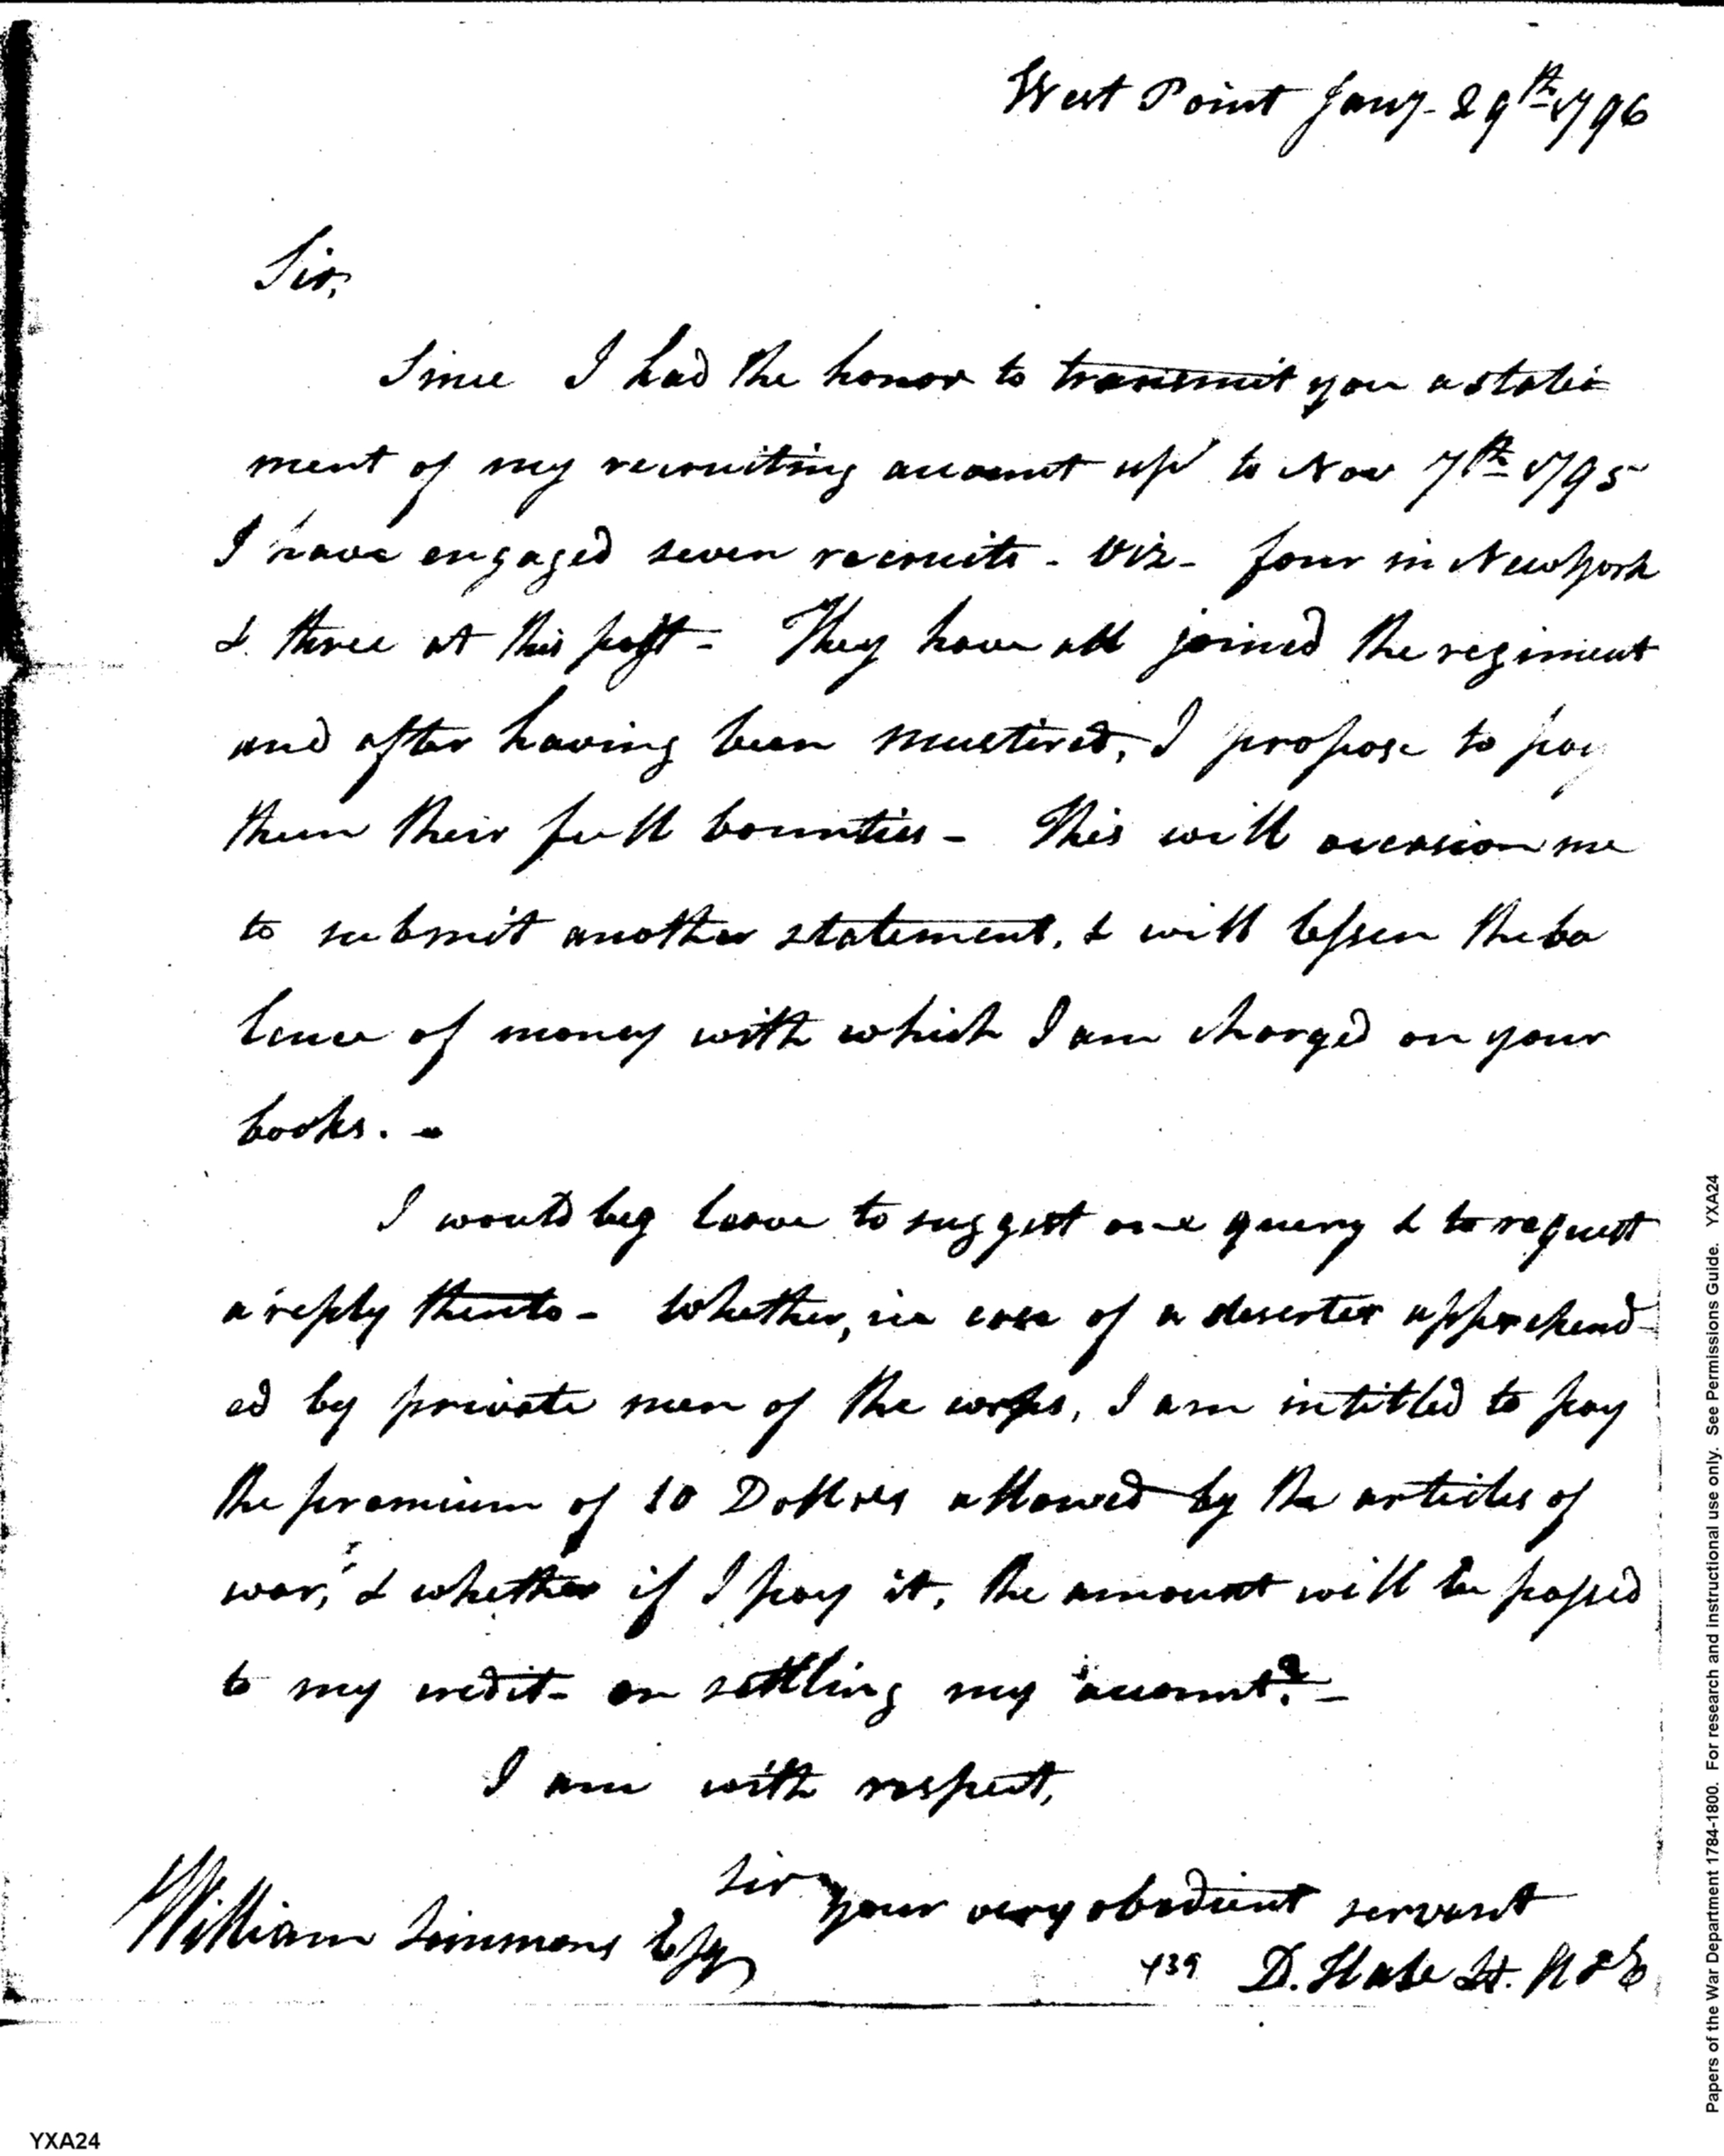 West Point Jany. 29th 1796
Sir,
Since I had the honor to transmit you a state
ment of my recruiting account up to Nov 7th 1795
I have engaged seven recruits - Viz - four in New York
& three at this post - They have all joined the regiment
and after having been mustered, I propose to pay
them their full bounties - This will occasion me
to submit another statement, & will lessen the ba
lance of money with which I am charged on your
books. -
I would beg leave to suggest one query & to request
a reply thereto - Whether, in case of a deserter apprehend
ed by private men of the corps, I am intitled to pay
the premium of 10 Dollars allowed by the articles of
war, & whether if I pay it, the amount will be passed
to my credit - on settling my account? -
I am with respect,
Sir your very obedient servant
William Simmons Esq
439 D. Hale Lt. A & E
Papers of the War Department 1784-1800. For research and instructional use only. See Permissions Guide. YXA24
YXA24